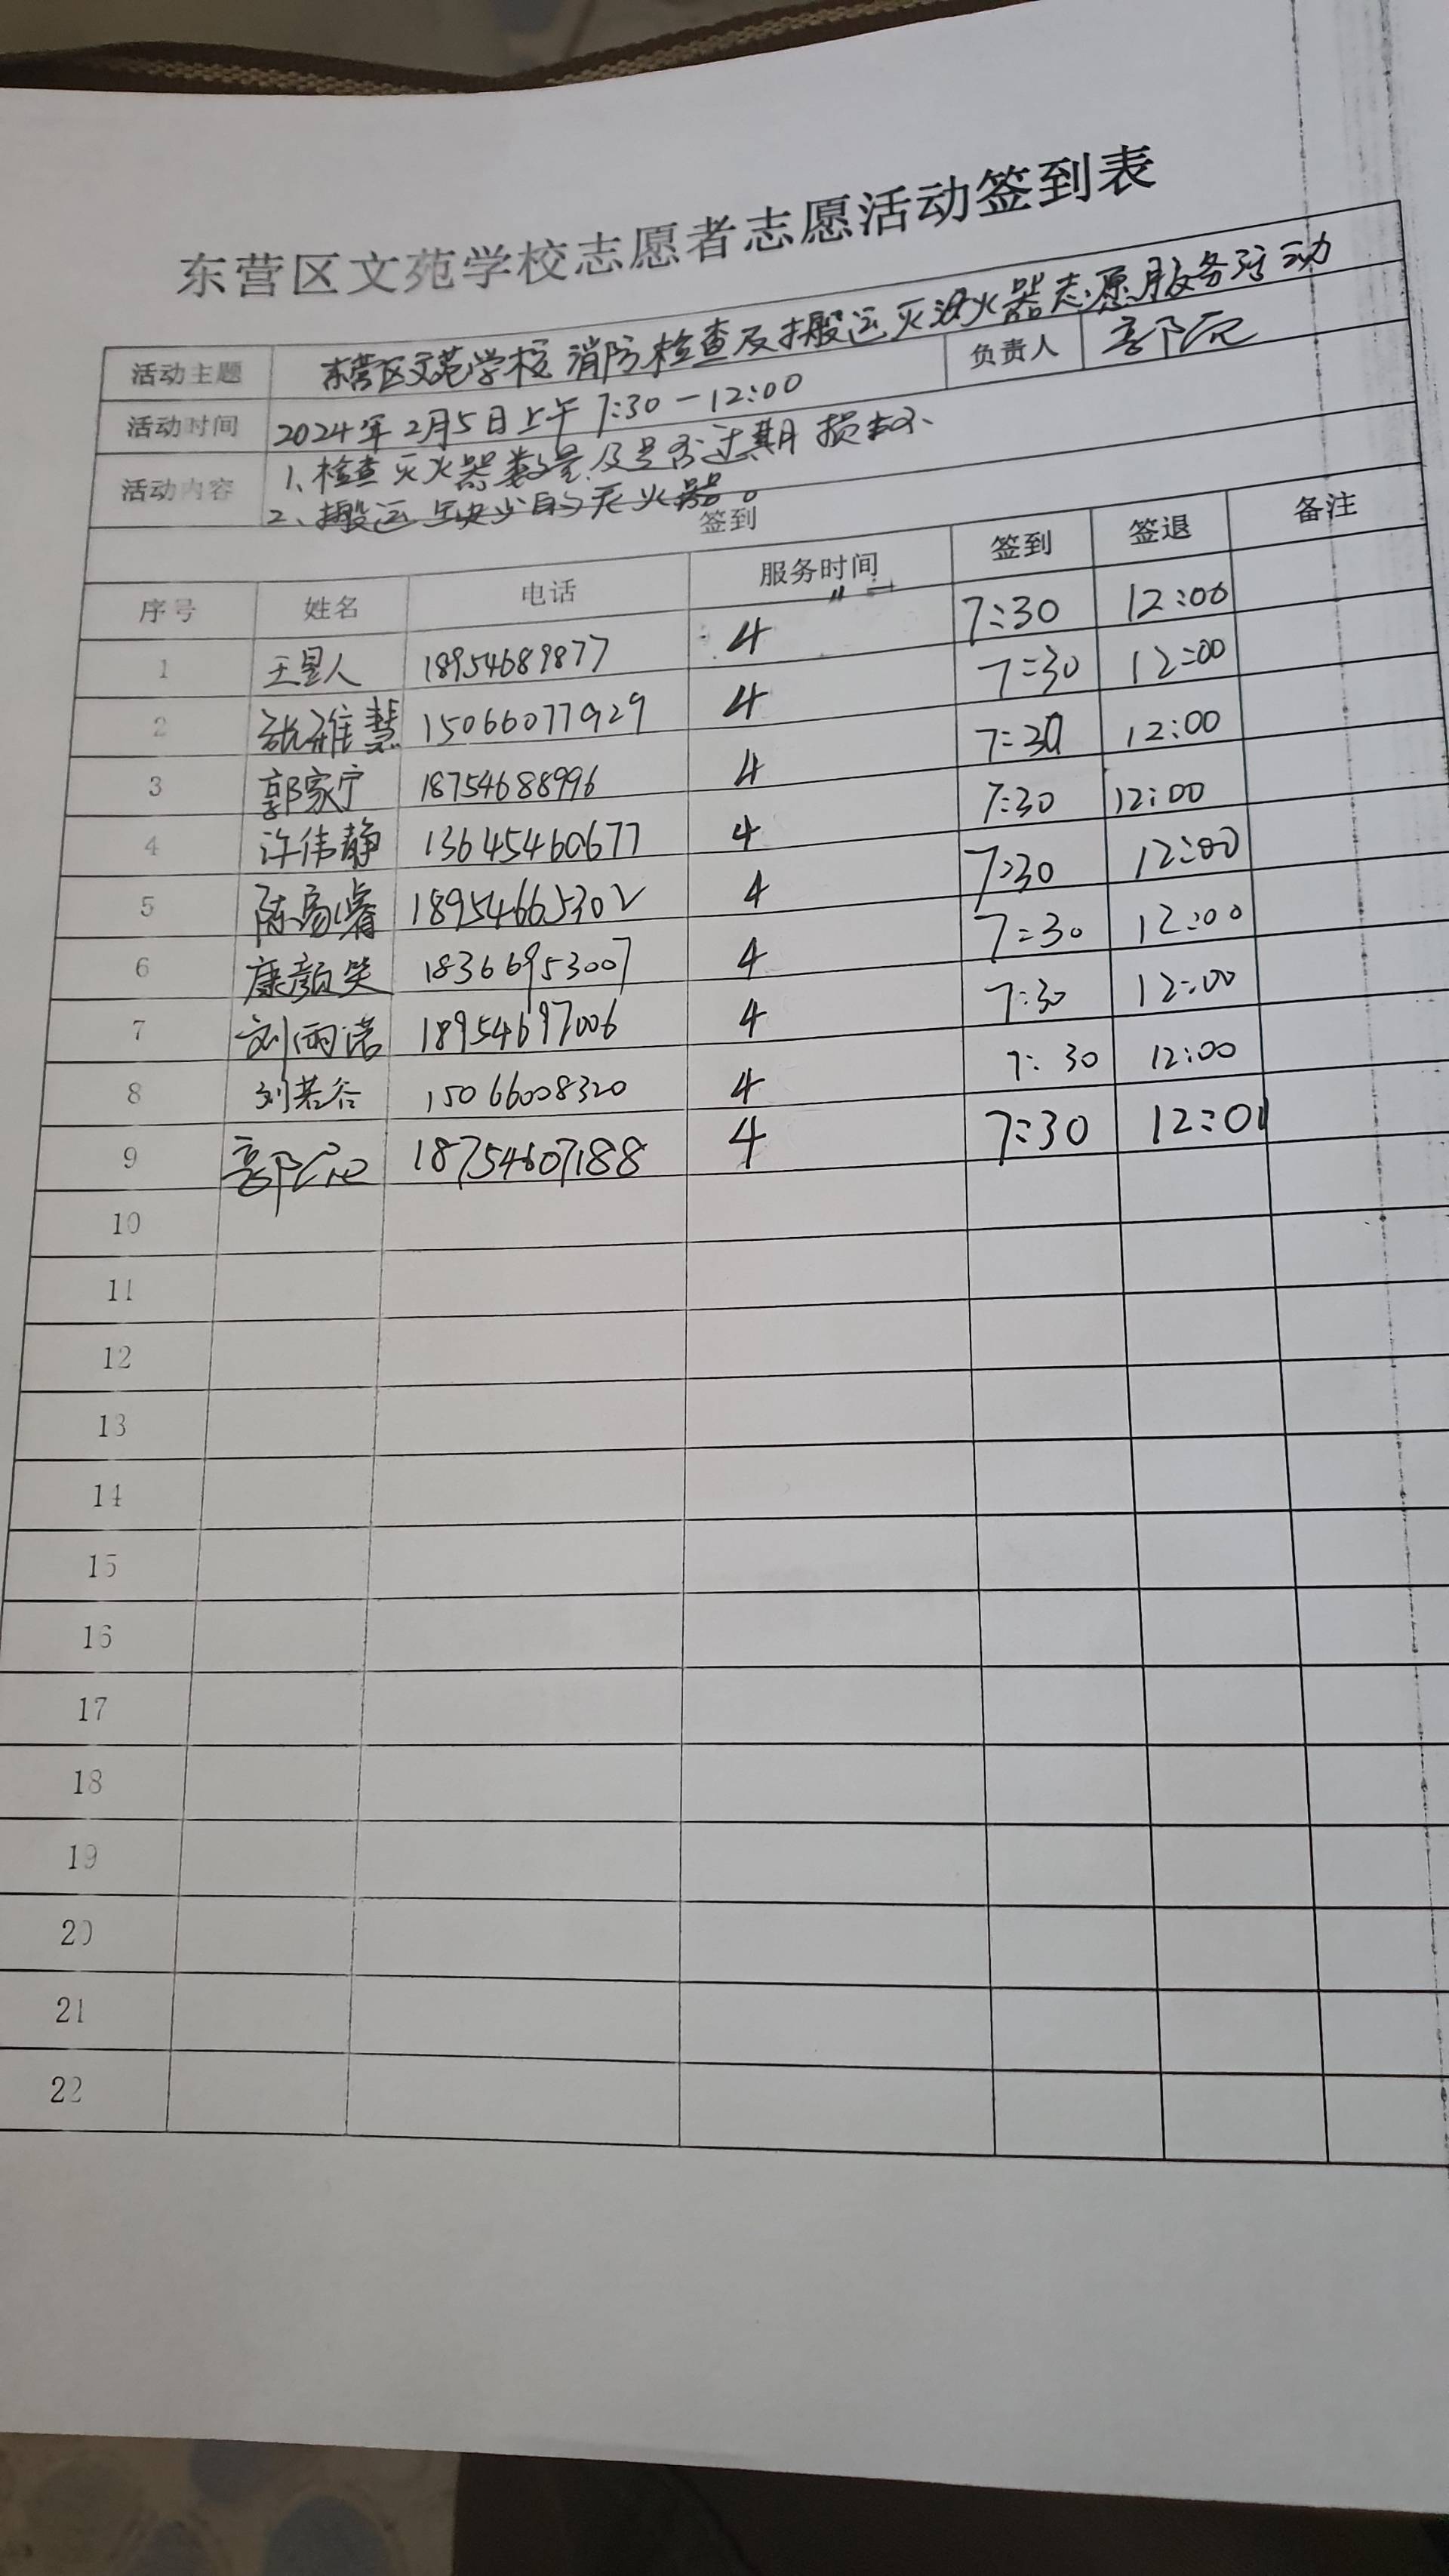 东营区文苑学校志愿者志愿活动签到表
活动主题 东营区文苑学校消防检查及搬运灭火器志愿服务活动
活动时间 2024年2月5日上午7:30-12:00 负责人
活动内容 1、检查灭火器数量及是否过期损坏、
2、搬运缺少的灭火器。
签到
序号 姓名 电话 服务时间 签到 签退 备注
1 王昱人 18954689877 4 7:30 12:00
2 张雅慧 15066077929 4 7:30 12:00
3 郭家宁 18754688996 4 7:30 12:00
4 许伟静 13645460677 4 7:30 12:00
5 陈 18954665302 4 7:30 12:00
6 康颜笑 18366953007 4 7:30 12:00
7 刘雨诺 18954697006 4 7:30 12:00
8 刘若谷 15066008320 4 7:30 12:00
9 18754607188 4 7:30 12:00
10
11
12
13
14
15
16
17
18
19
20
21
22